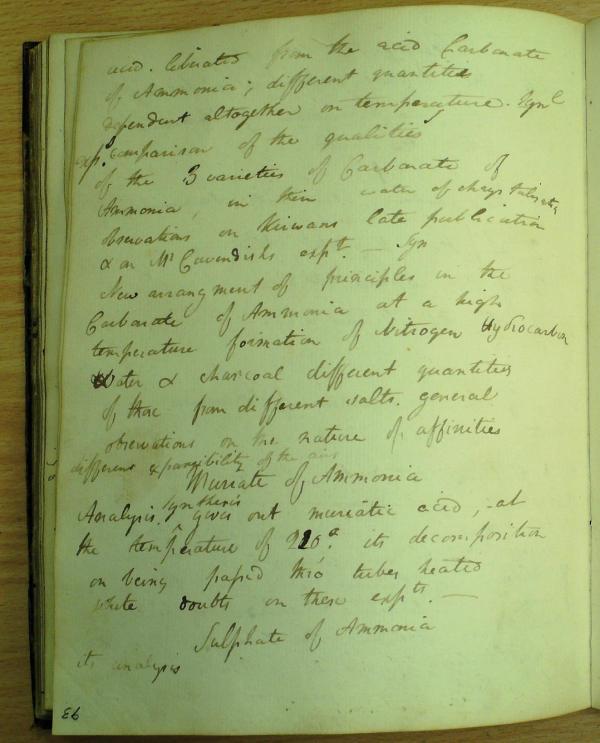 acid. liberated from the acid Carbonate
of Ammonia; different quantities
dependent altogether on temperature.
expt. Comparison of the qualities
of the 3 varieties of Carbonate of
Ammonia, in their water of chrystalisatn
observations on Kirwans late publication
& on Mr Cavendishs expts. — Syn
New arrangment of principles in the
Carbonate of Ammonia at a high
temperature formation of Nitrogen Hydrocarbon
Water & charcoal different quantities
of these from different salts. general
observations on the nature of affinities
different expansibility of the airs
Muriate of Ammonia
Analysis. synthesis gives out muriatic acid, at
the temperature of its decomposition
on being pass'd thro' tubes heated
white doubts on these expts. —
Sulphate of Ammonia
its analysis
93